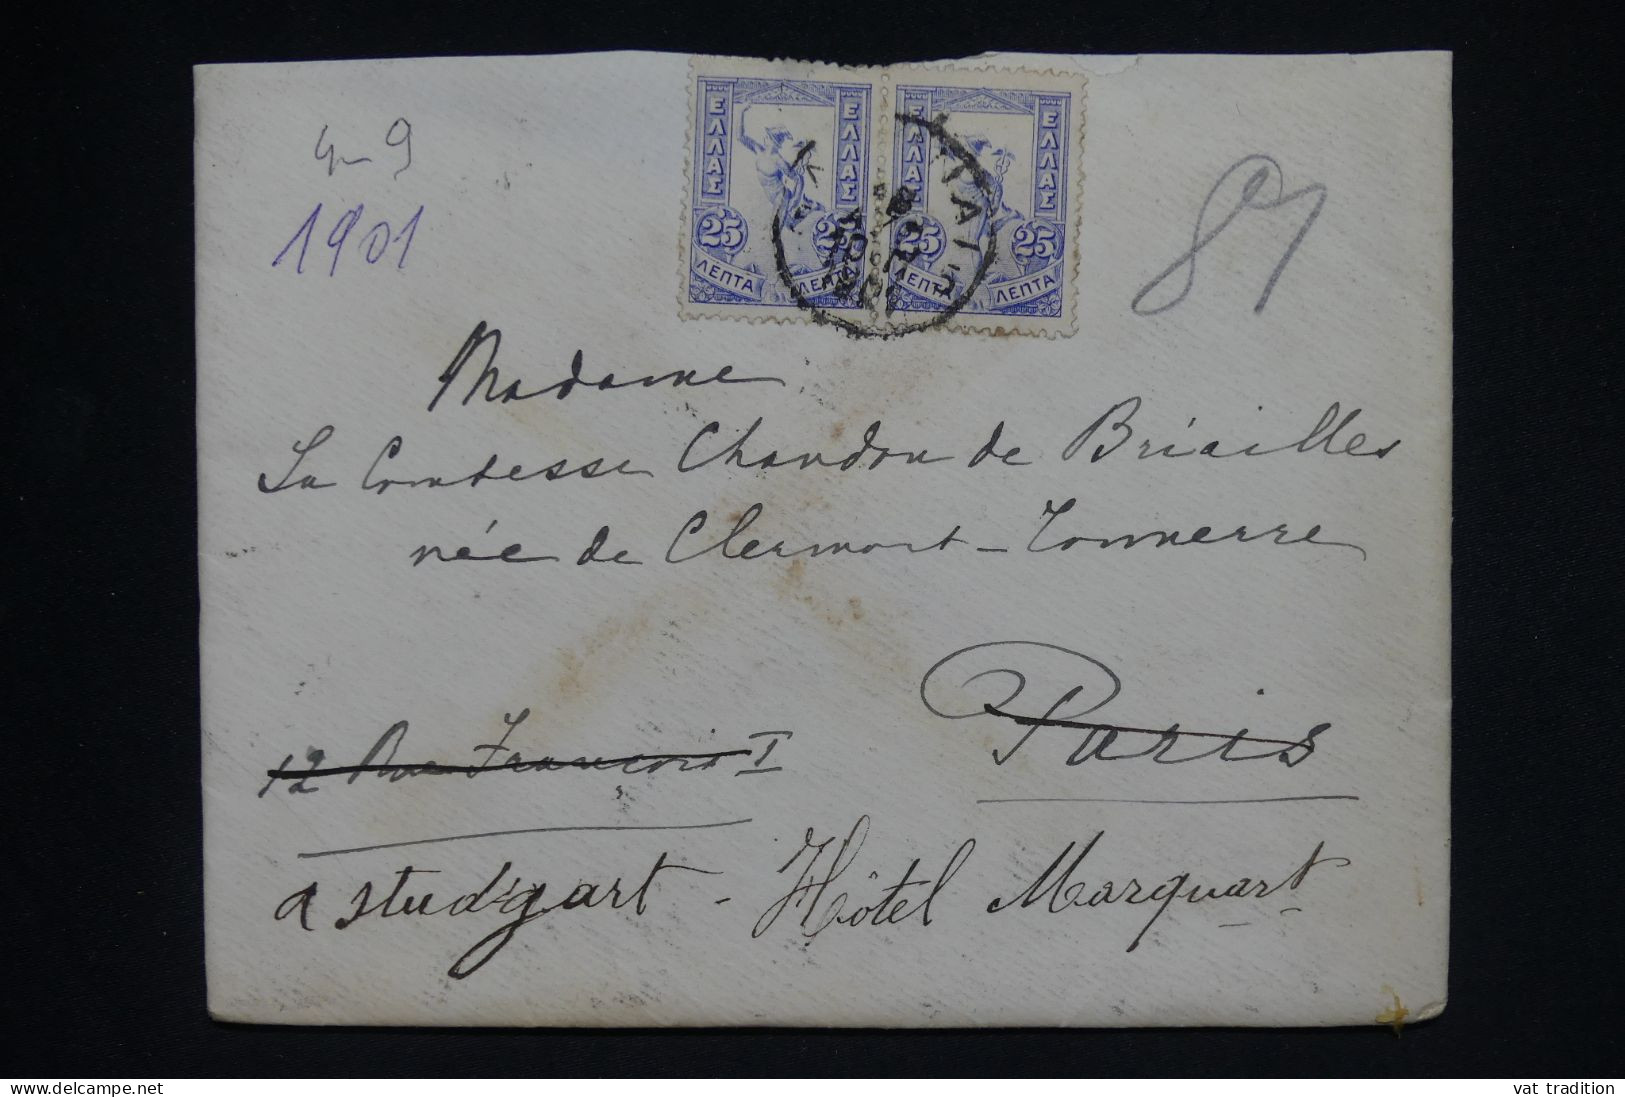 4-9
1901
ΕΛΛΑΣ ΕΛΛΑΣ ΕΛΛΑΣ ΕΛΛΑΣ
25 25 25 25
ΛΕΠΤΑ ΛΕΠΤΑ ΛΕΠΤΑ ΛΕΠΤΑ
81
Madame
La Comtesse Chandon de Briailles
née de Clermont-Tonnerre
Paris
12 Rue François I
a Studtgart - Hôtel Marquart
vat tradition